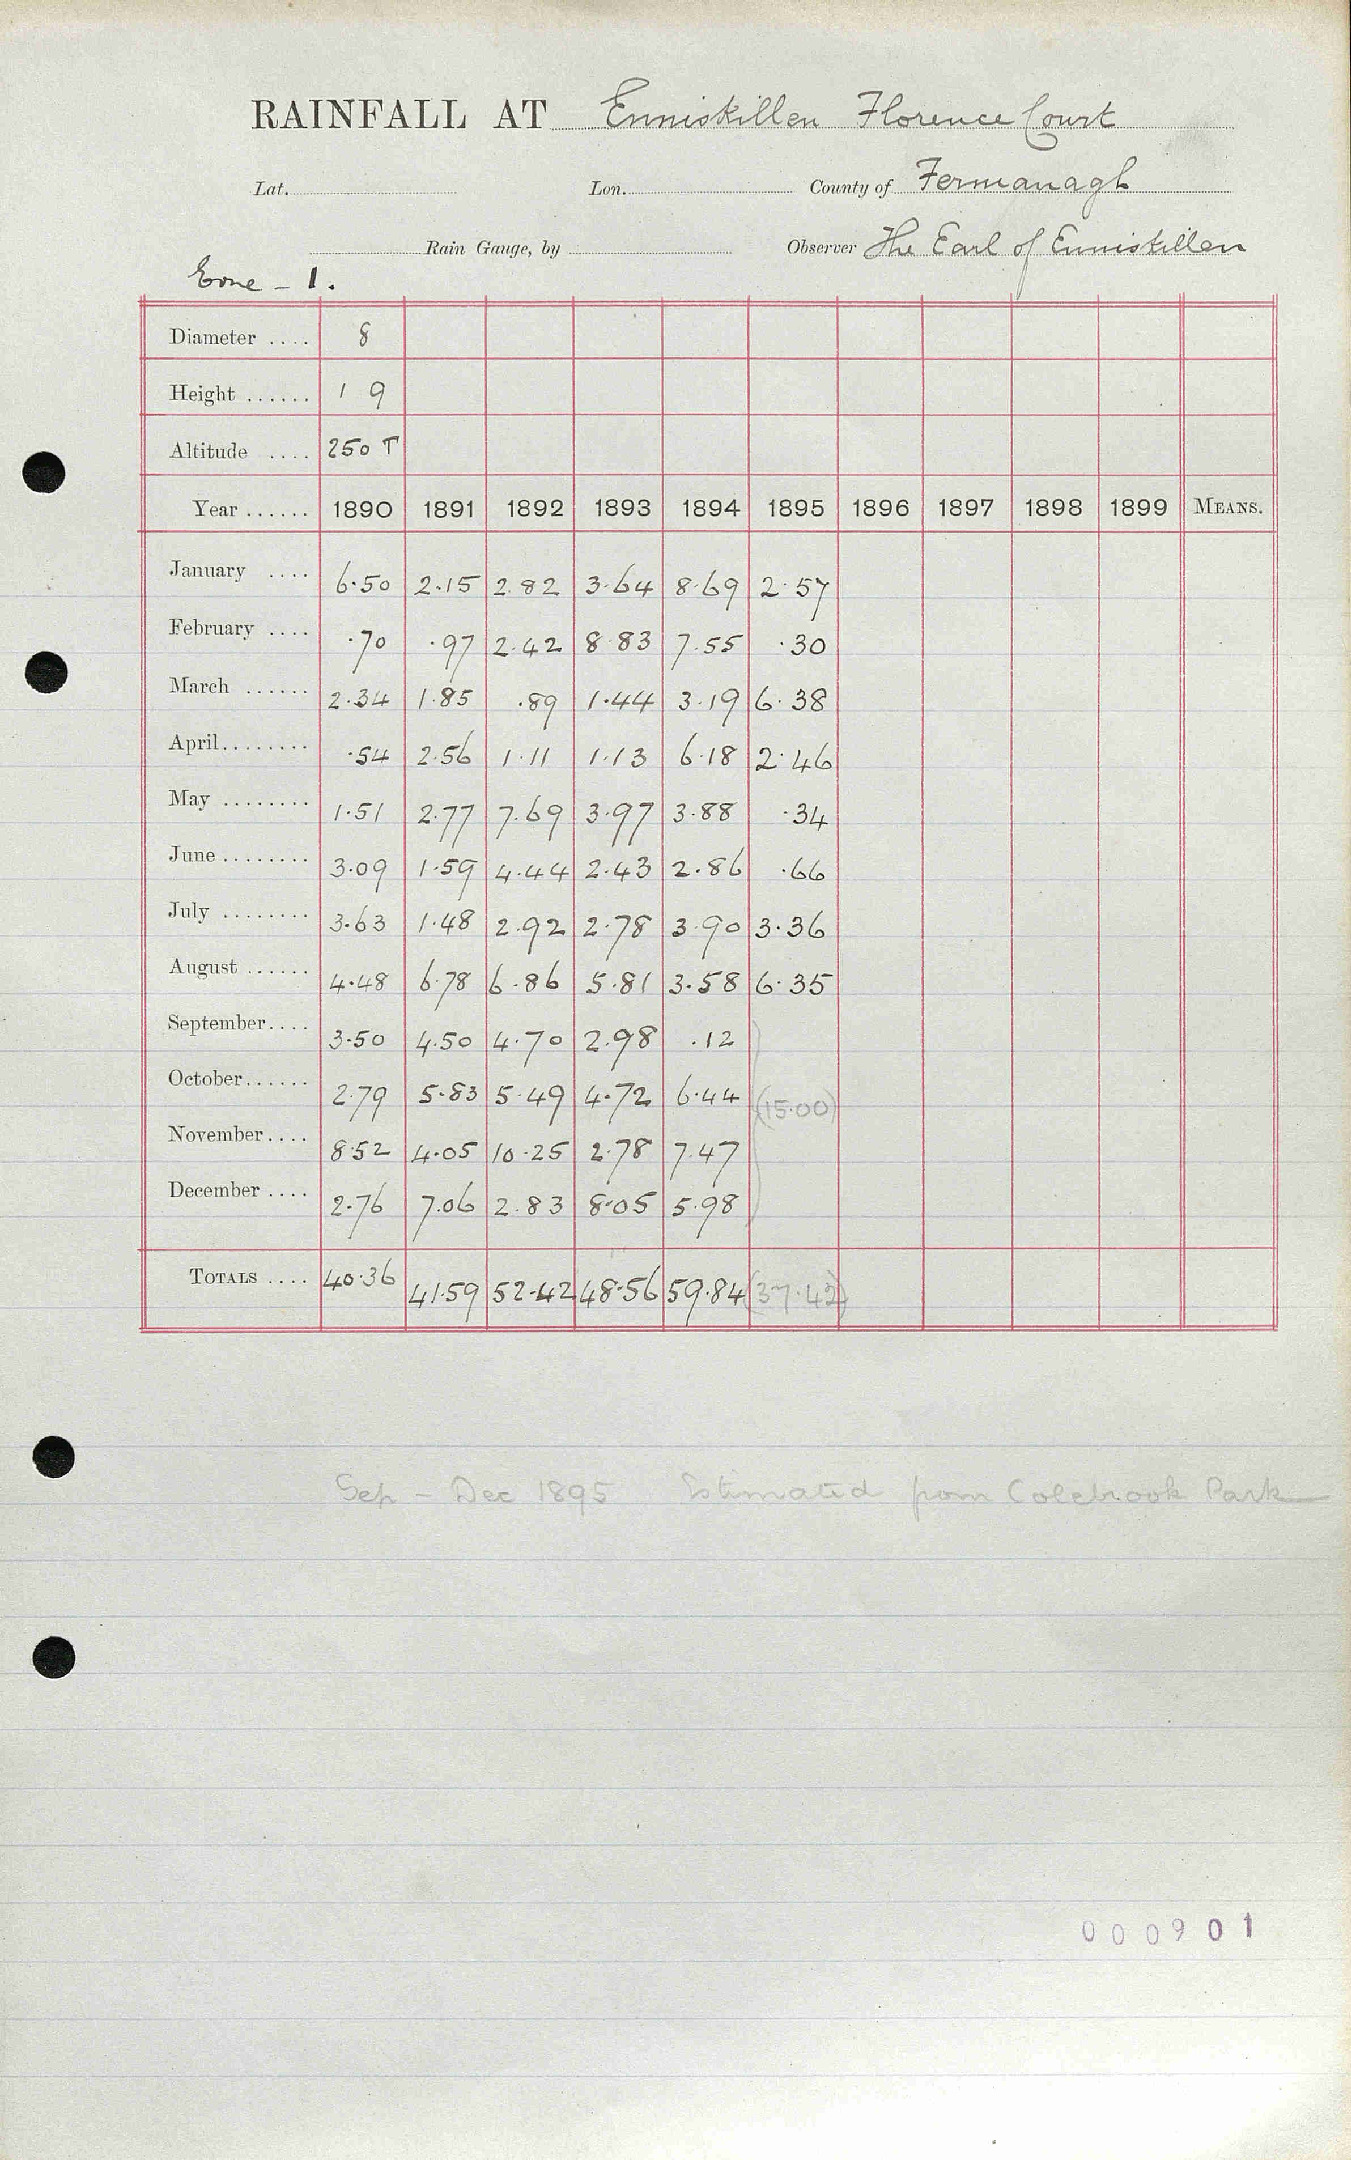 RAINFALL AT Enniskillen Florence Court
Lat. Lon. County of Fermanagh
Rain Gauge, by Observer The Earl of Enniskillen
Erne - 1.
Diameter .... 8
Height ...... 1 9
Altitude .... 250 T
Year ...... 1890 1891 1892 1893 1894 1895 1896 1897 1898 1899 MEANS.
January .... 6.50 2.15 2.82 3.64 8.69 2.57
February .... .70 .97 2.42 8.83 7.55 .30
March ...... 2.34 1.85 .89 1.44 3.19 6.38
April........ .54 2.56 1.11 1.13 6.18 2.46
May ........ 1.51 2.77 7.69 3.97 3.88 .34
June ........ 3.09 1.59 4.44 2.43 2.86 .66
July ........ 3.63 1.48 2.92 2.78 3.90 3.36
August ...... 4.48 6.78 6.86 5.81 3.58 6.35
September.... 3.50 4.50 4.70 2.98 .12
October...... 2.79 5.83 5.49 4.72 6.44 (15.00)
November.... 8.52 4.05 10.25 2.78 7.47
December .... 2.76 7.06 2.83 8.05 5.98
TOTALS .... 40.36 41.59 52.42 48.56 59.84 (37.42)
Sep - Dec 1895 Estimated from Colebrook Park
000901